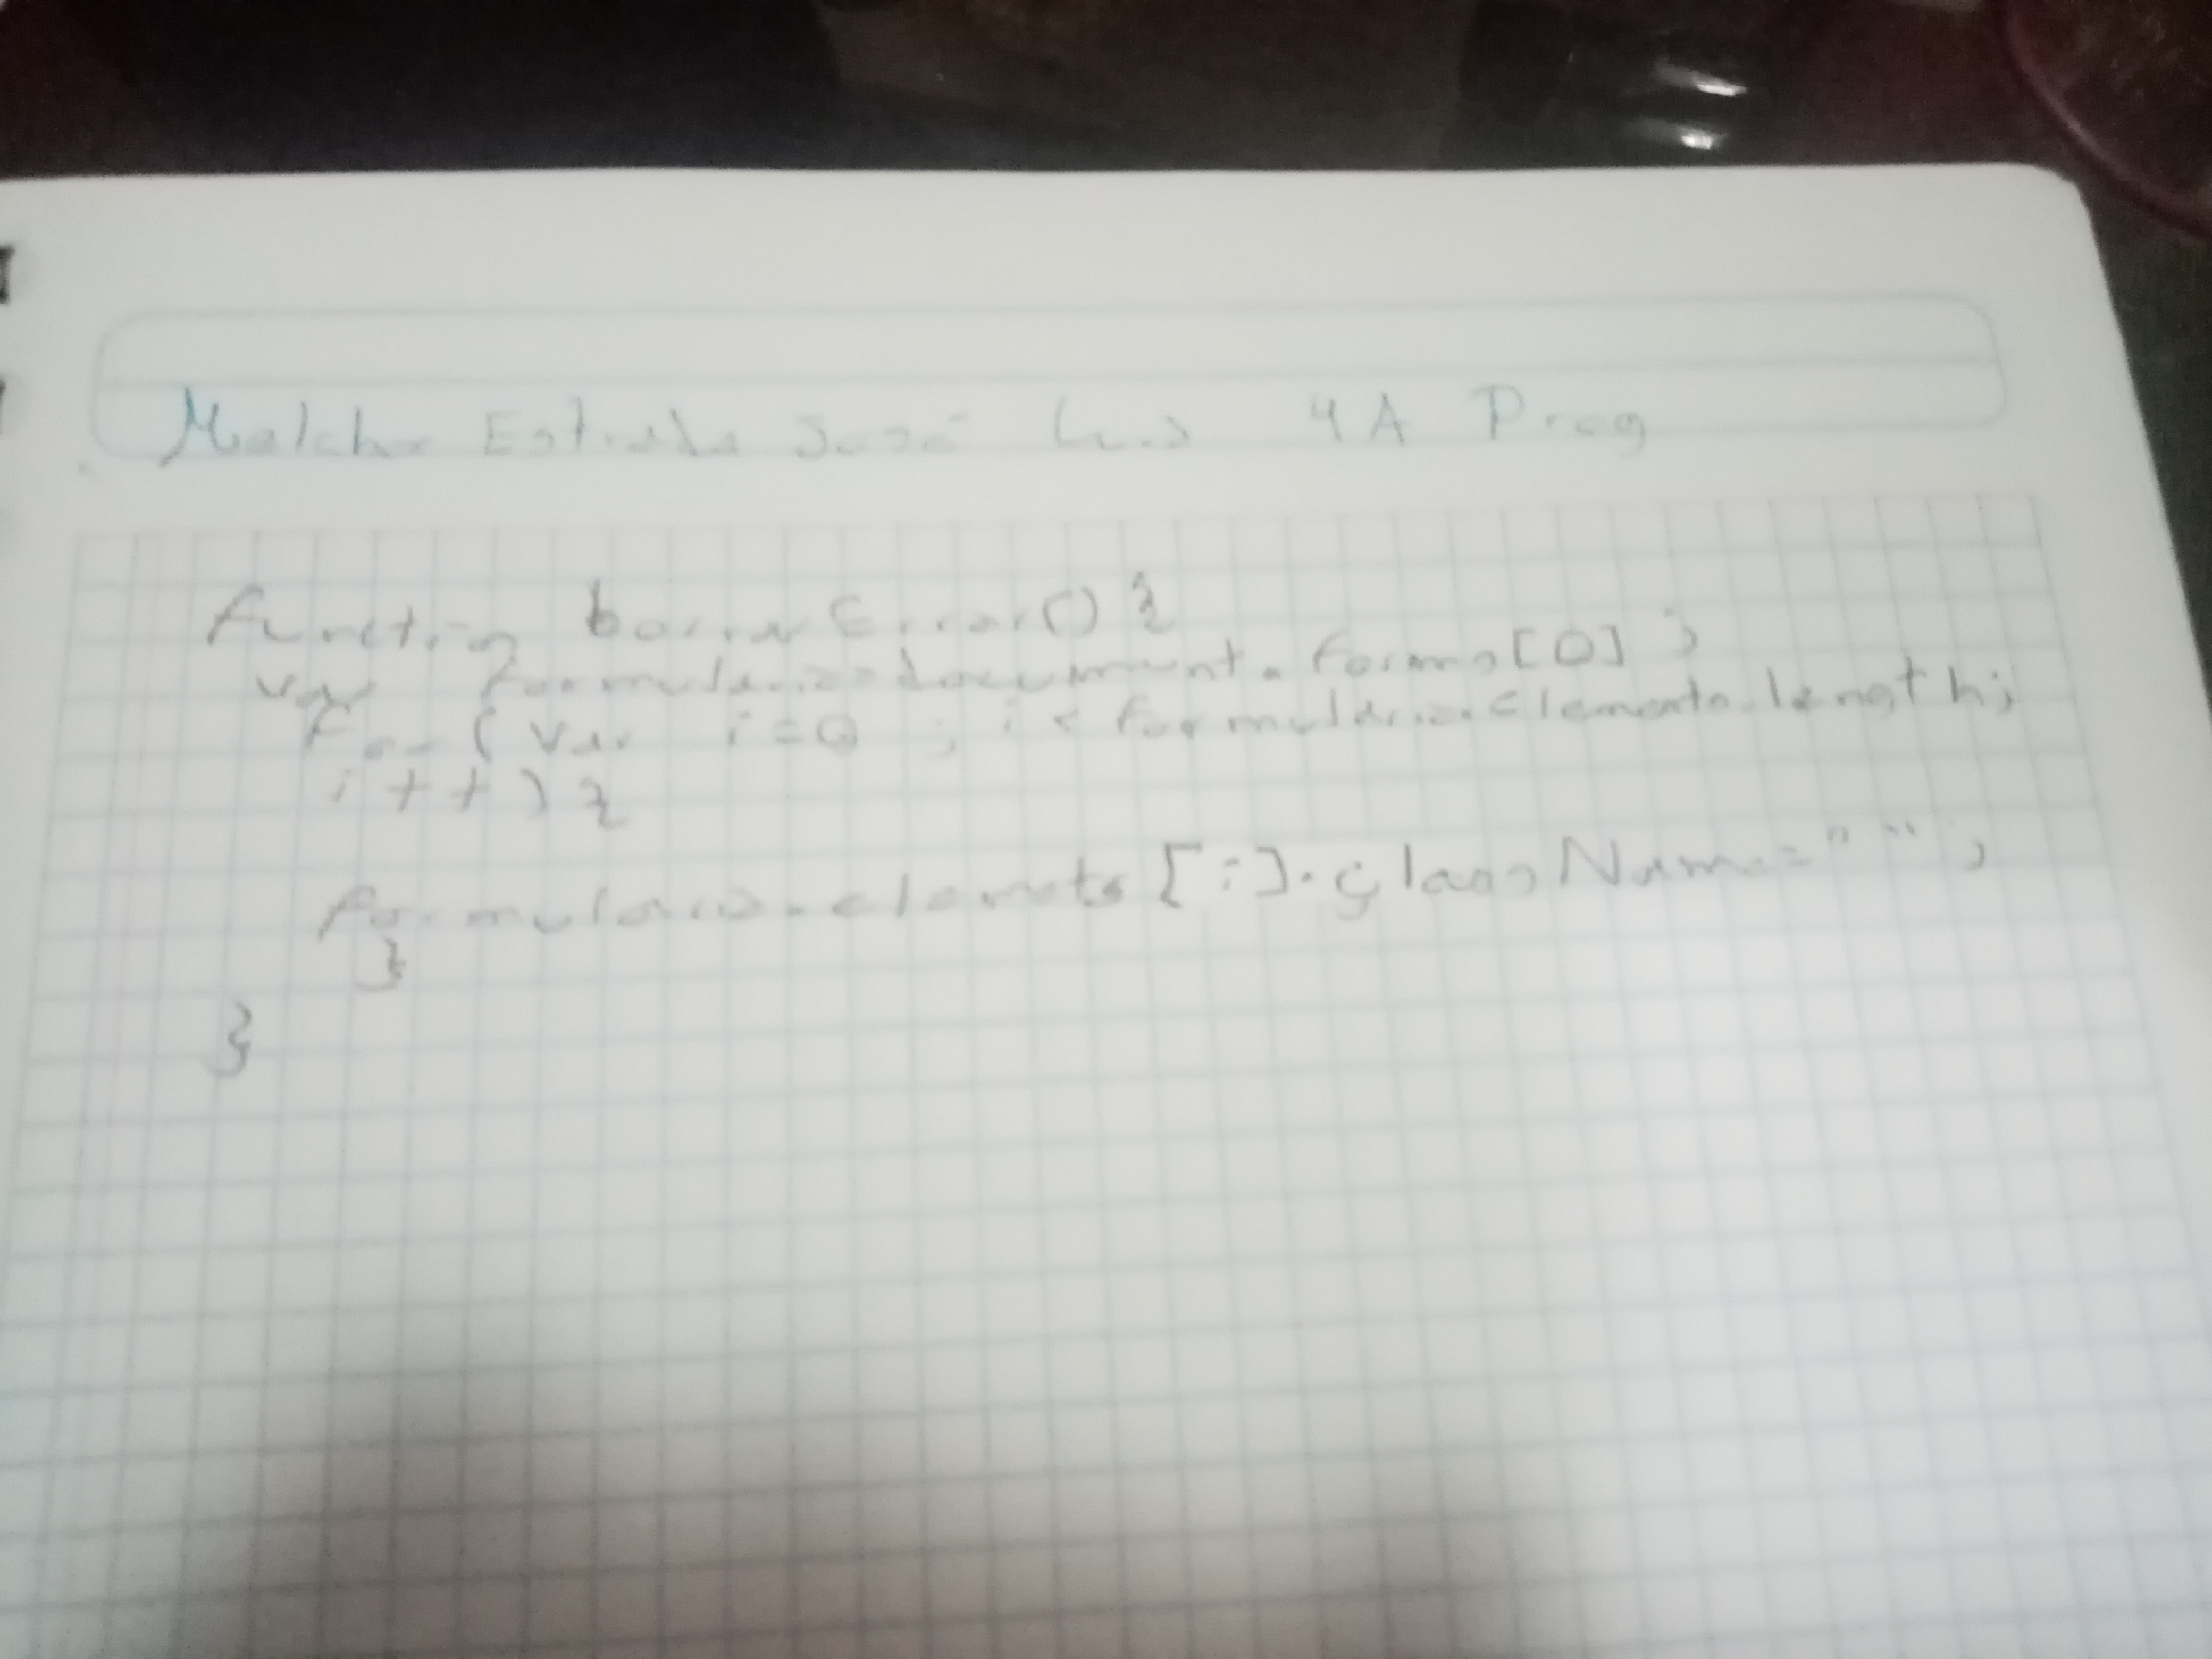 Melchor Estrada José Luis 4A Prog
function borrarError(){
var formulario=document.forms[0];
for(var i=0; i<formulario.elements.length;
i++){
formulario.elemets[i].className="";
}
}